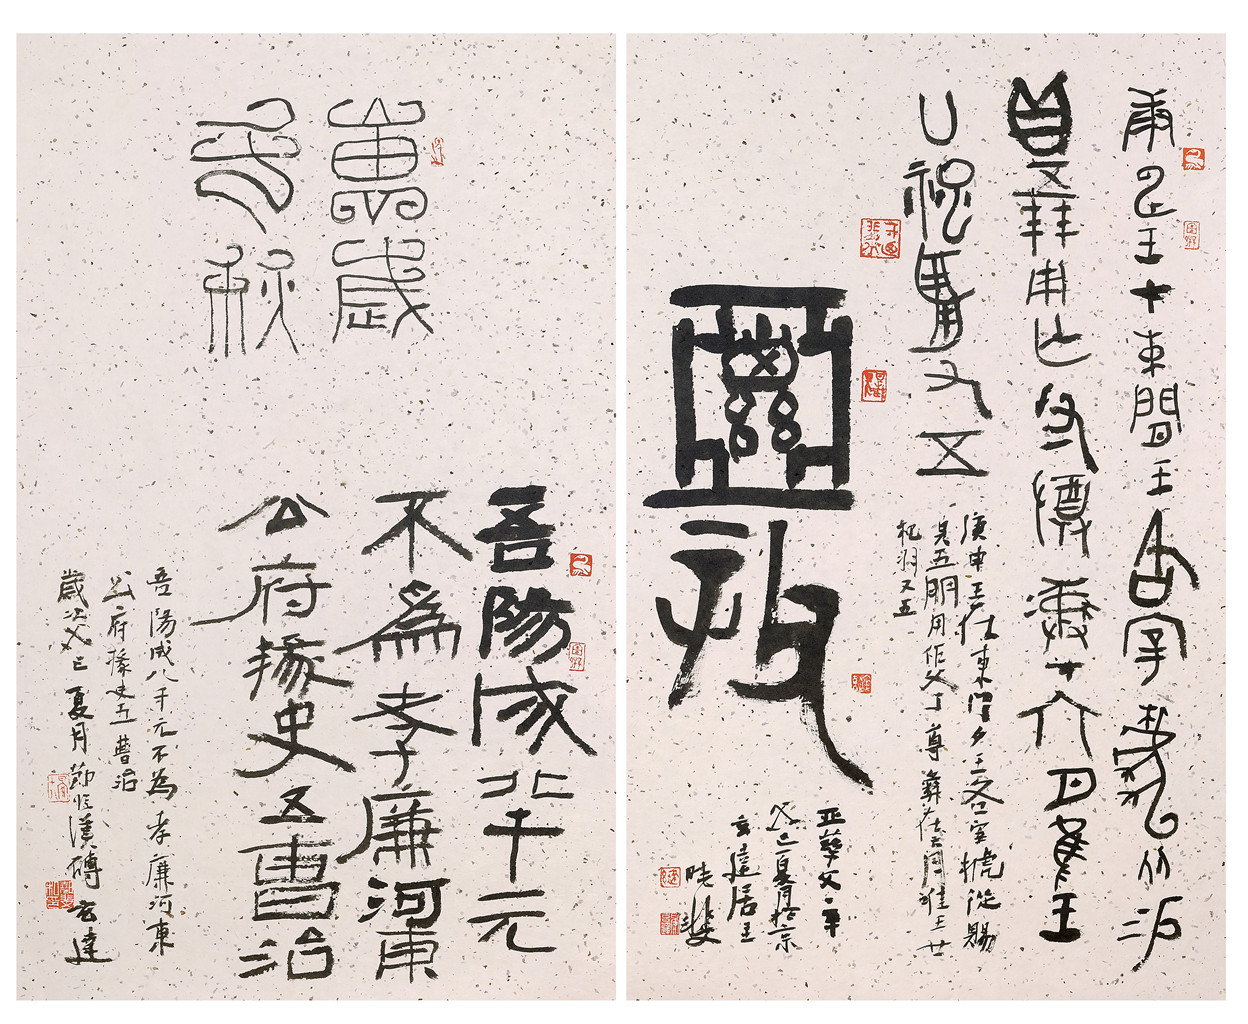 庚申王才東間王各宰椃从
易貝五朋用乍父丁尊彝才六月隹王
廿祀翌又五
庚申王在東門夕王各宰椃從賜
貝五朋用作父丁尊彝在六月唯王廿
祀羽又五
亞
癸巳夏月於京
玄達居主
曉斐
萬歲
千秋
吾陽成北千元
不為孝廉河東
公府掾史五曹治
吾陽成八千元不為孝廉河東
公府掾史五曹治
歲次癸巳夏月節臨漢磚玄達